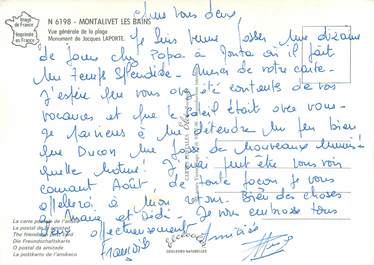 Image
de France
Imprimée
en France
N 6198 - MONTALIVET LES BAINS
Vue générale de la plage
Monument de Jacques LAPORTE.
vous deux
Je suis venue passer une dizaine
de jours chez Papa à où il fait
un temps splendide. Merci de votre carte.
J'espère que vous avez été contents de vos
vacances et que le soleil était avec vous.
Je parviens à me détendre un peu bien
que Ducon me fasse de nouveaux
quelle histoire! Je vais peut être vous voir
courant Août de toute façon je vous
appellerai à mon retour. Bien des choses
à Marie et Didi. Je vous embrasse tous
affectueusement
Françoise
Amitiés
La carte postale de l'amitié
La postal de la amistad
The friendship card
Die Freundschaftskarte
O postal da amizade
La postkarto de l'amikeco
COULEURS NATURELLES